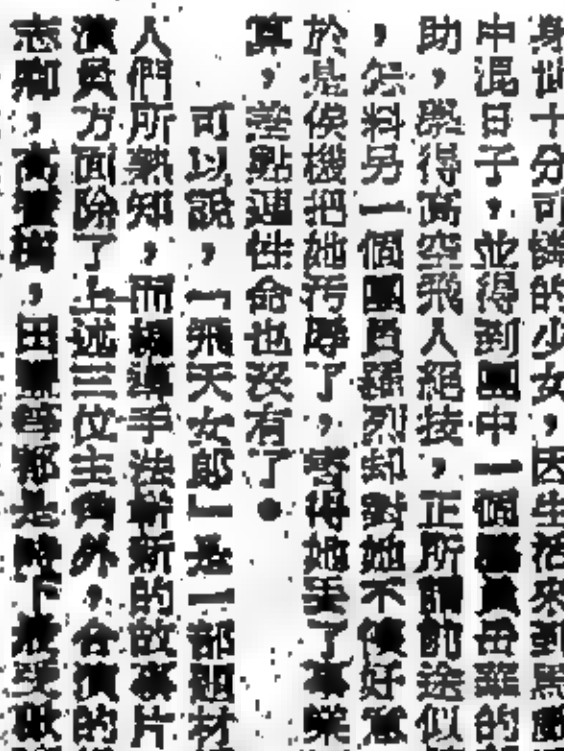 身世十分可憐的少女,因生活來到馬戲
中混日子,並得到團中一個團員毋菲的
助,學得高空飛人絕技,正所謂前途似
,怎料另一個團員羅烈却對她不懷好意
於是俟機把她污辱了,害得她丟了事業
算,差點連性命也沒有了●
可以說,「飛天女郎」是一部題材
人們所熟知,而報導手法新的故事片
演員方面除了上述三位主角外,各演的
志剛,高,田等都是下最受歡